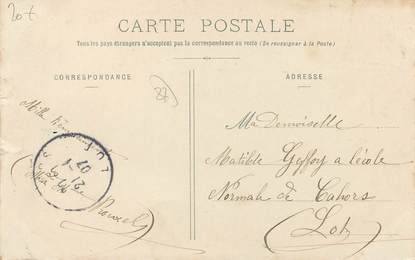 20+
CARTE POSTALE
Tous les pays étrangers n'acceptent pas la correspondance au recto (Se renseigner à la Poste)
CORRESPONDANCE
ADRESSE
22
Mille
Ma Demoiselle
Matilde Geffoy a lécole
Normale de Cahors
(Lot)
21
07
LOT